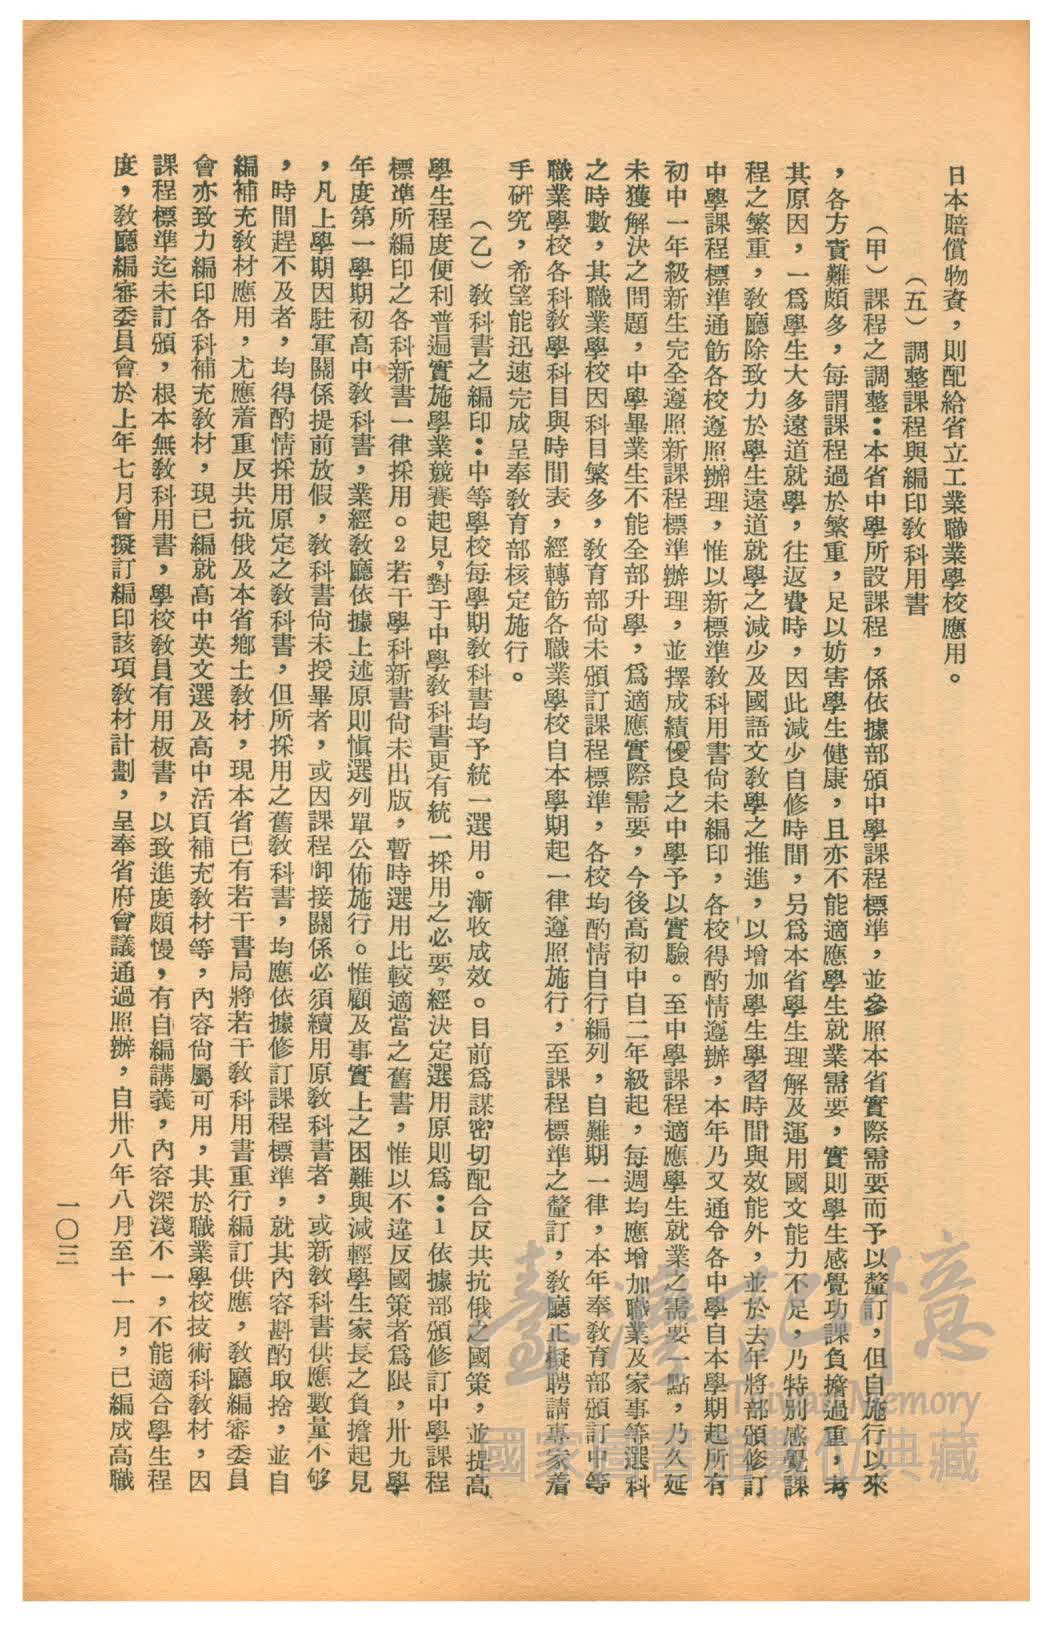 日本賠償物資，則配給省立工業職業學校應用。
（五）調整課程與編印敎科用書
（甲）課程之調整：本省中學所設課程，係依據部頒中學課程標準，並參照本省實際需要而予以釐訂，但自施行以來
，各方責難頗多，每謂課程過於繁重，足以妨害學生健康，且亦不能適應學生就業需要，實則學生感覺功課負擔過重，考
其原因，一爲學生大多遠道就學，往返費時，因此減少自修時間，另爲本省學生理解及運用國文能力不足，乃特別感覺課
程之繁重，敎廳除致力於學生遠道就學之減少及國語文敎學之推進，以增加學生學習時間與效能外，並於去年將部頒修訂
中學課程標準通飭各校遵照辦理，惟以新標準敎科用書尙未編印，各校得酌情遵辦，本年乃又通令各中學自本學期起所有
初中一年級新生完全遵照新課程標準辦理，並擇成績優良之中學予以實驗。至中學課程適應學生就業之需要一點，乃久延
未獲解決之問題，中學畢業生不能全部升學，爲適應實際需要，今後高初中自二年級起，每週均應增加職業及家事等選科
之時數，其職業學校因科目繁多，敎育部尙未頒訂課程標準，各校均酌情自行編列，自難期一律，本年奉敎育部頒訂中等
職業學校各科敎學科目與時間表，經轉飭各職業學校自本學期起一律遵照施行，至課程標準之釐訂，敎廳正擬聘請專家着
手研究，希望能迅速完成呈奉敎育部核定施行。
（乙）敎科書之編印：中等學校每學期敎科書均予統一選用。漸收成效。目前爲謀密切配合反共抗俄之國策，並提高
學生程度便利普遍實施學業競賽起見，對于中學敎科書更有統一採用之必要，經決定選用原則爲：1依據部頒修訂中學課程
標準所編印之各科新書一律採用。2若干學科新書尙未出版，暫時選用比較適當之舊書，惟以不違反國策者爲限，卅九學
年度第一學期初高中敎科書，業經敎廳依據上述原則愼選列單公佈施行。惟顧及事實上之困難與減輕學生家長之負擔起見
，凡上學期因駐軍關係提前放假，敎科書尙未授畢者，或因課程啣接關係必須續用原敎科書者，或新敎科書供應數量不够
，時間趕不及者，均得酌情採用原定之敎科書，但所採用之舊敎科書，均應依據修訂課程標準，就其內容斟酌取捨，並自
編補充敎材應用，尤應着重反共抗俄及本省鄉土敎材，現本省已有若干書局將若干敎科用書重行編訂供應，敎廳編審委員
會亦致力編印各科補充敎材，現已編就高中英文選及高中活頁補充敎材等，內容尙屬可用，其於職業學校技術科敎材，因
課程標準迄未訂頒，根本無敎科用書，學校敎員有用板書，以致進度頗慢，有自編講義，內容深淺不一，不能適合學生程
度，敎廳編審委員會於上年七月曾擬訂編印該項敎材計劃，呈奉省府會議通過照辦，自卅八年八月至十一月，已編成高職
一〇三
臺灣記憶
Taiwan Memory
國家圖書館數位典藏